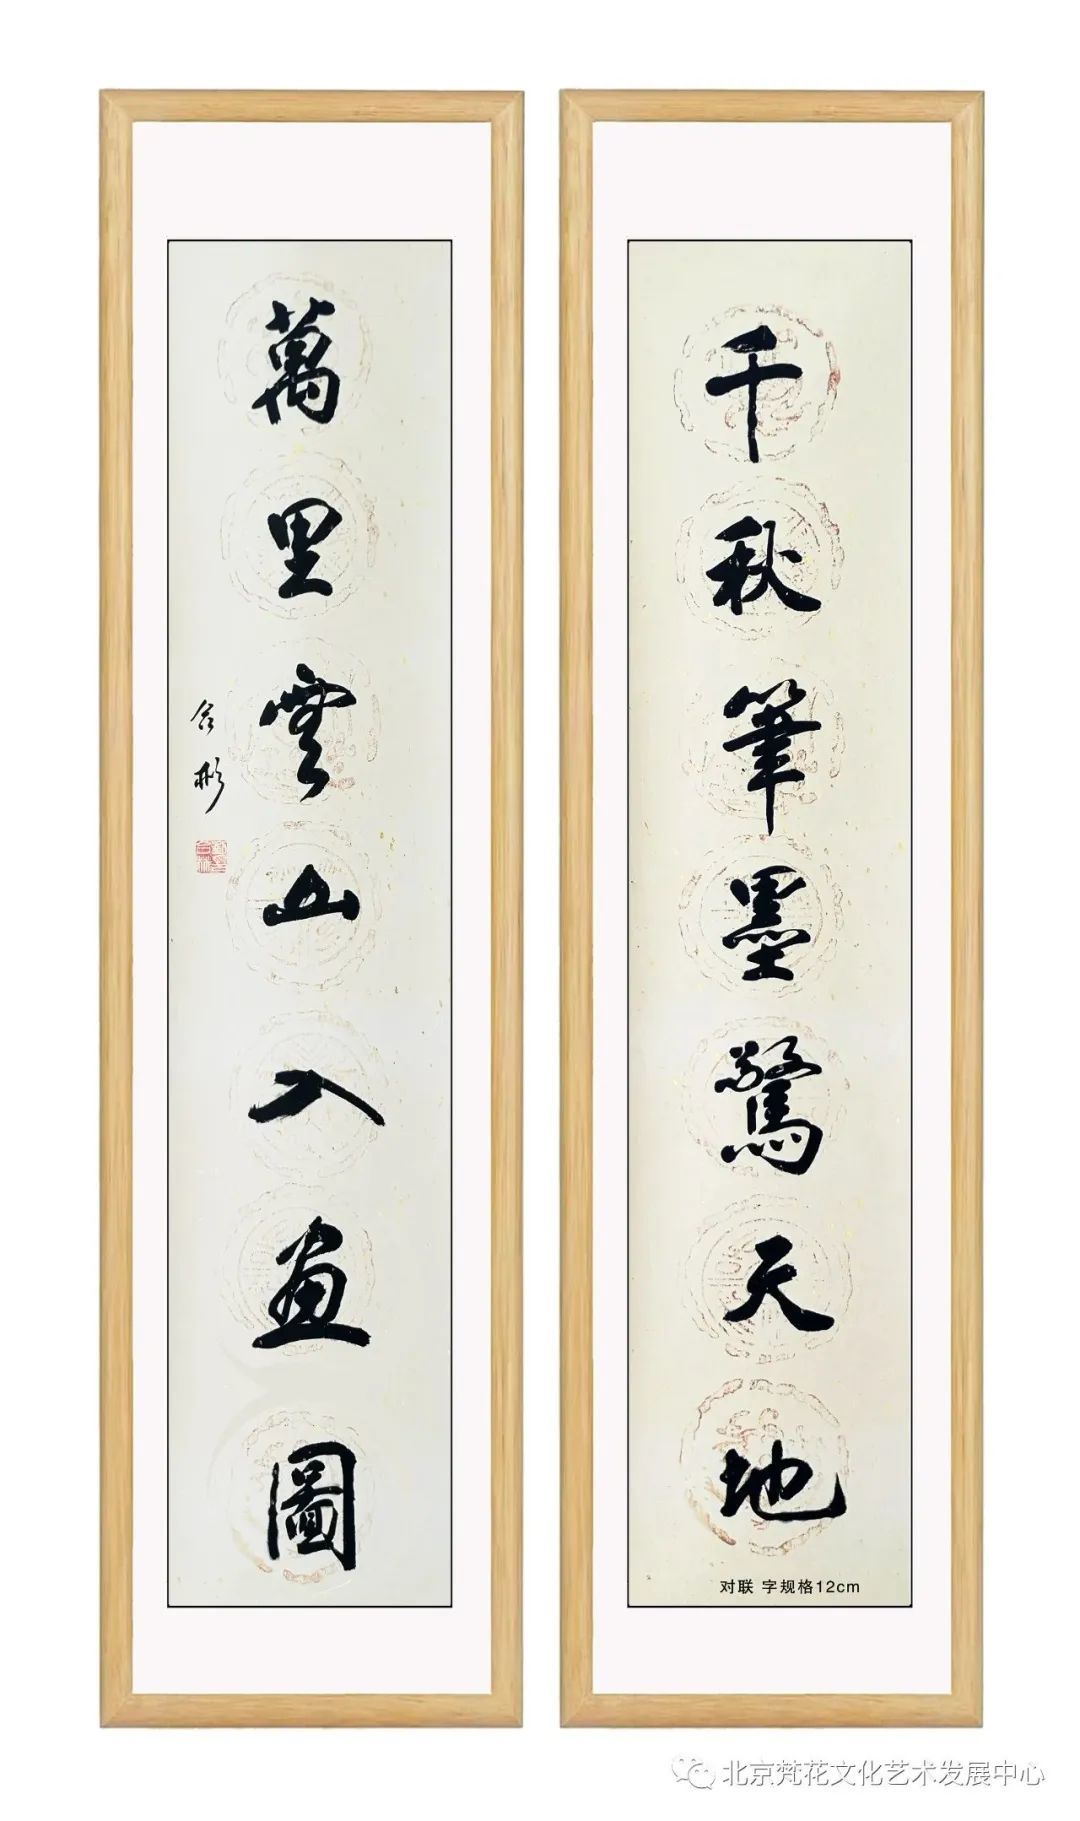 千秋筆墨驚天地
萬里雲山入畫圖
合彬
对联 字规格12cm
北京梵花文化艺术发展中心